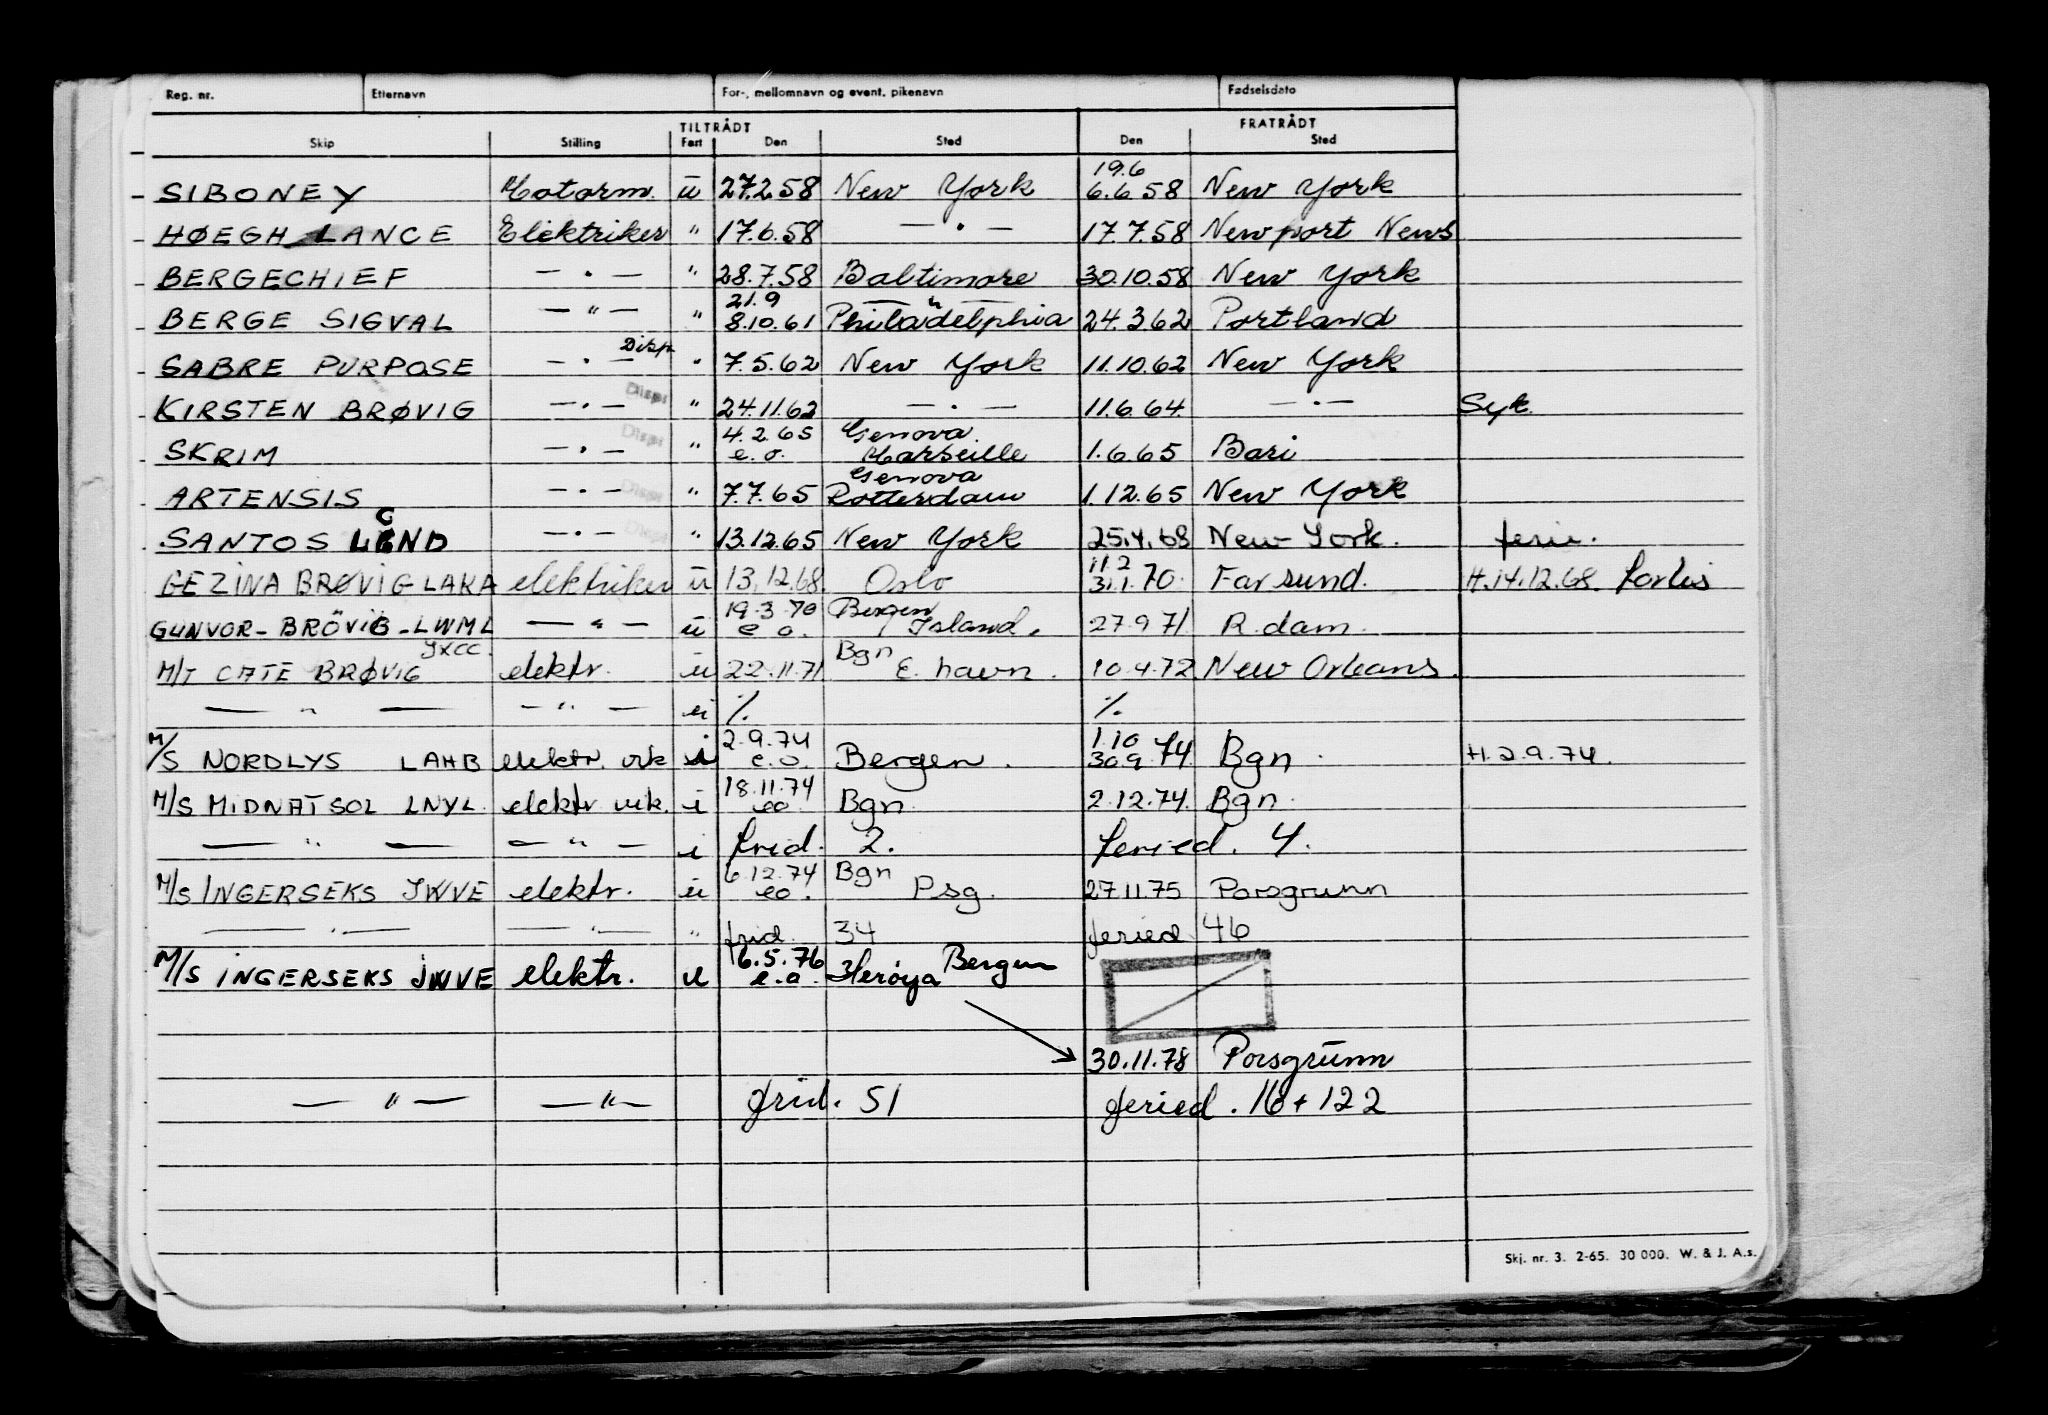 Reg. nr. Etternavn For-, mellomnavn og event. pikenavn Fødselsdato
TILTRÅDT FRATRÅDT
Skip Stilling Fart Den Sted Den Sted
19.6
SIBONEY Motorm. ū 27.2.58 New York 6.6.58 New York
HØEGH LANCE Elektriker " 17.6.58 — . — 17.7.58 Newport News
BERGECHIEF — . — " 28.7.58 Baltimore 30.10.58 New York
21.9 — " —
BERGE SIGVAL — " — " 8.10.61 Philadelphia 24.3.62 Portland
Disp
SABRE PURPOSE — . — " 7.5.62 New York 11.10.62 New York
Disp
KIRSTEN BRØVIG — . — " 24.11.62 — . — 11.6.64. — . — Syk.
Disp 4.2.65 Genova.
SKRIM — . — " e.o. Marseille 1.6.65 Bari
Disp Genova
ARTENSIS — . — " 7.7.65 Rotterdam 1.12.65 New York
Disp
SANTOS LUND — . — " 13.12.65 New York 25.4.68 New York. ferie.
11.2
GEZINA BRØVIG LAKA elektriker ū 13.12.68. Oslo 31.1.70. Farsund. H.14.12.68.
19.3.70 Bergen
GUNVOR-BRÖVIG-LWML — " — ū e o. Island. 27.9.71 R.dam.
JXCC. Bgn
M/T CATE BRØVIG elektr. ū 22.11.71 E.havn. 10.4.72 New Orleans.
— " — — " — ū %. %.
2.9.74 1.10
M/S NORDLYS LAHB elektr. vik i e.o. Bergen. 30.9.74 Bgn. H.2.9.74.
18.11.74
M/S MIDNATSOL LNYL. elektr vik. i eo. Bgn. 2.12.74. Bgn.
— " — — " — i frid. 2. feried. 4.
6.12.74 Bgn
M/S INGERSEKS JWVE elektr. ū eo. Psg. 27.11.75 Porsgrunn
— " — — " — " frid. 34 feried 46
6.5.76 Bergen
M/S INGERSEKS JWVE elektr. u e.o. Herøya
30.11.78 Porsgrunn
— " — — " — frid. 51 feried. 16+122
Skj. nr. 3. 2-65. 30 000. W. & J. A.s.